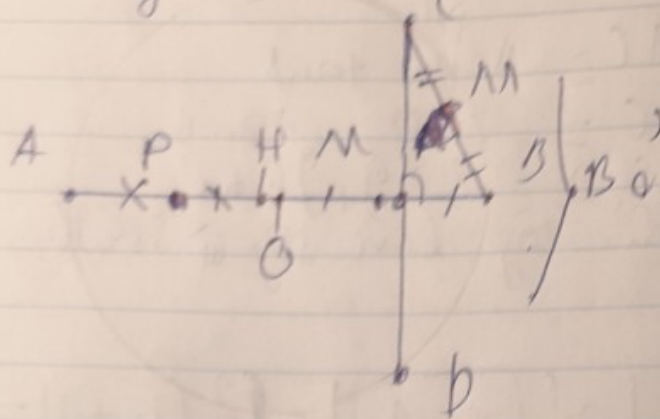 C
M
A P H M B B
O
D